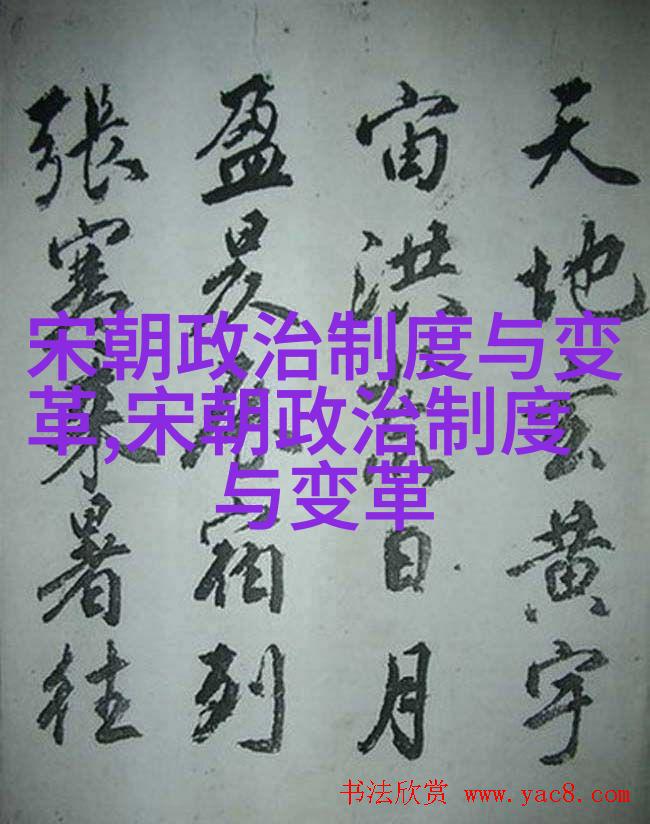 天地玄黄宇
宙洪荒日月
盈昃辰宿列
張寒来暑往
宋朝政治制度与变
革,宋朝政治制度
与变革
书法欣赏 www.yac8.com